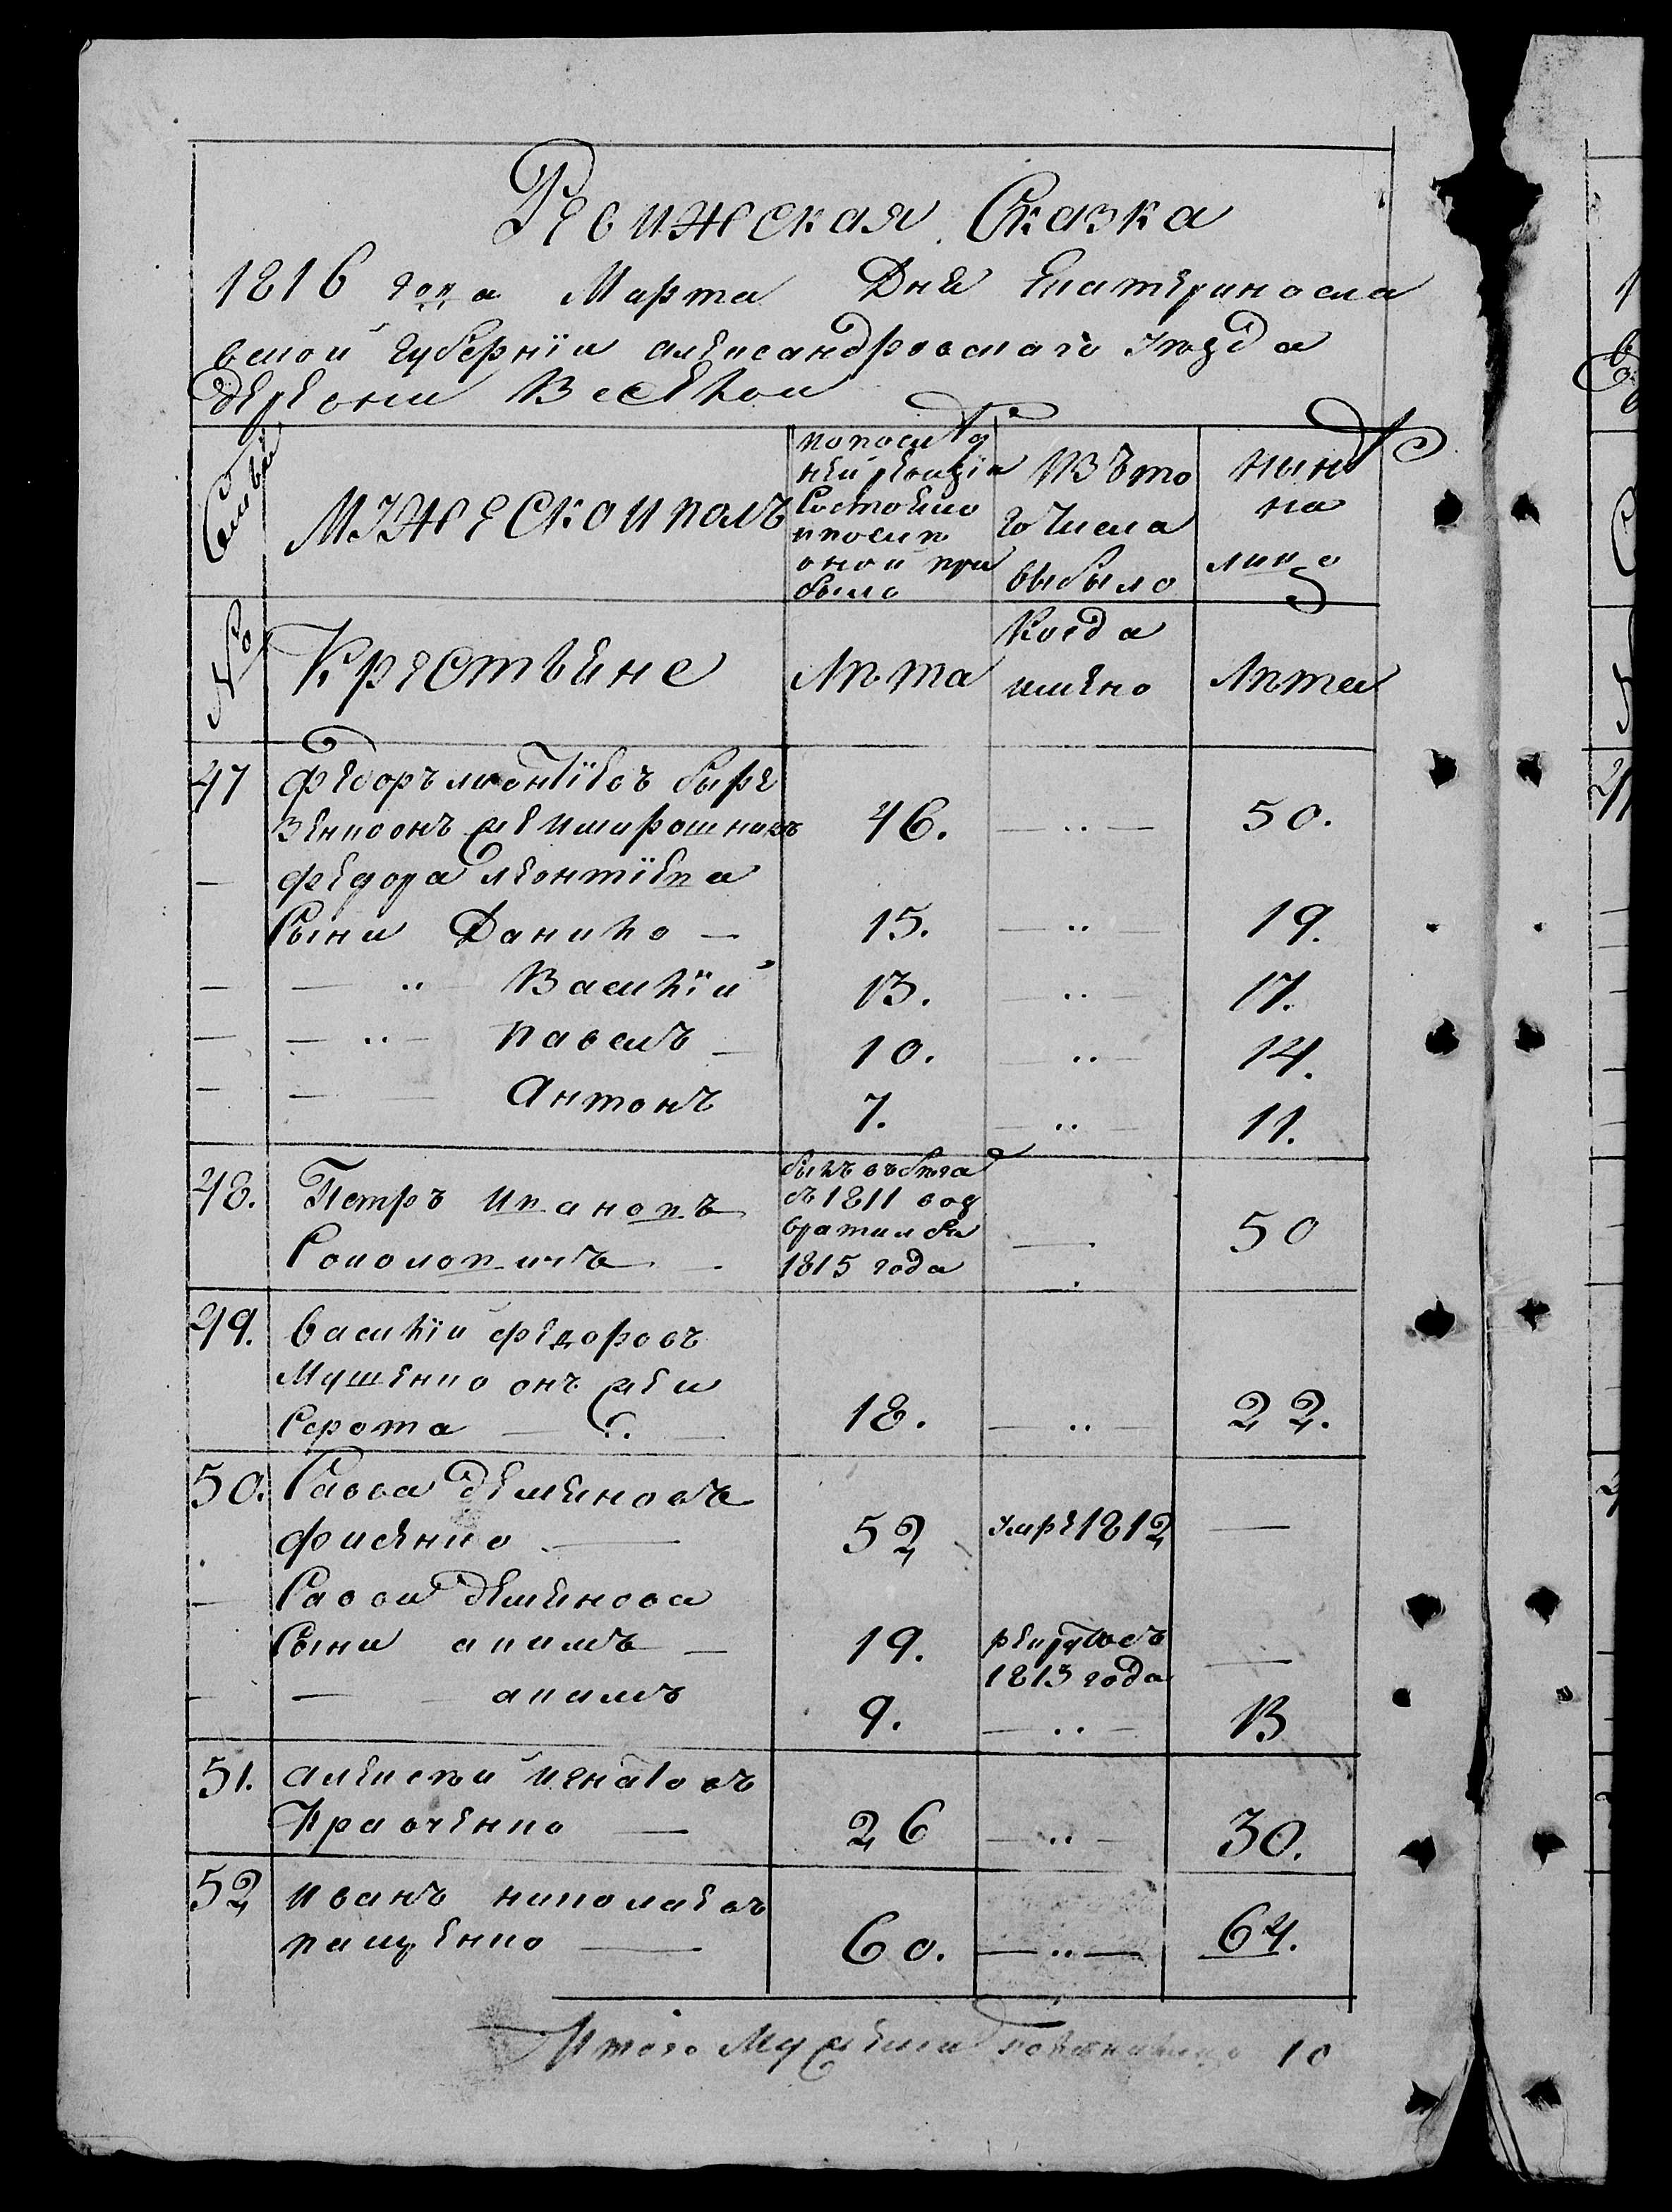 Ревижская Сказка
1816 года Марта Дня Екатериносла
вской губернїи александровскаго уезда
деревни Веселой
Семьи
мужескои полъ
по послѣд
ней ревизїи
состояло
и после
оной при
было
Изъ то
го числа
выбыло
нынѣ
на
лицо
№
Крестьяне
Лѣта
Когда
имено
Лѣта
47 федоръ леонтїевъ бере
зенко онъ же и мирошникъ 46. 50.
федора леонтїева
Сыни Данило 15. 19.
Василїй 13. 17.
павелъ 10. 14.
антонъ 7. 11.
48. Петръ ивановъ
Соколовичъ
былъ въ бѣгах
съ 1811 воз
вратился
1815 года
50
49. василїй федоровъ
Мушенко онъ же и
Серота 18. 22.
50. Савва деменовъ
фисенко 52 умре 1812
Саввы деменова
Сыни акимъ 19. рекрутъ съ
1813 года
акимъ 9. 13
51. алексѣй игнатовъ
Кравченко 26 30.
52 иванъ николаевъ
пащенко 60. 64.
Итого Мужеска 10